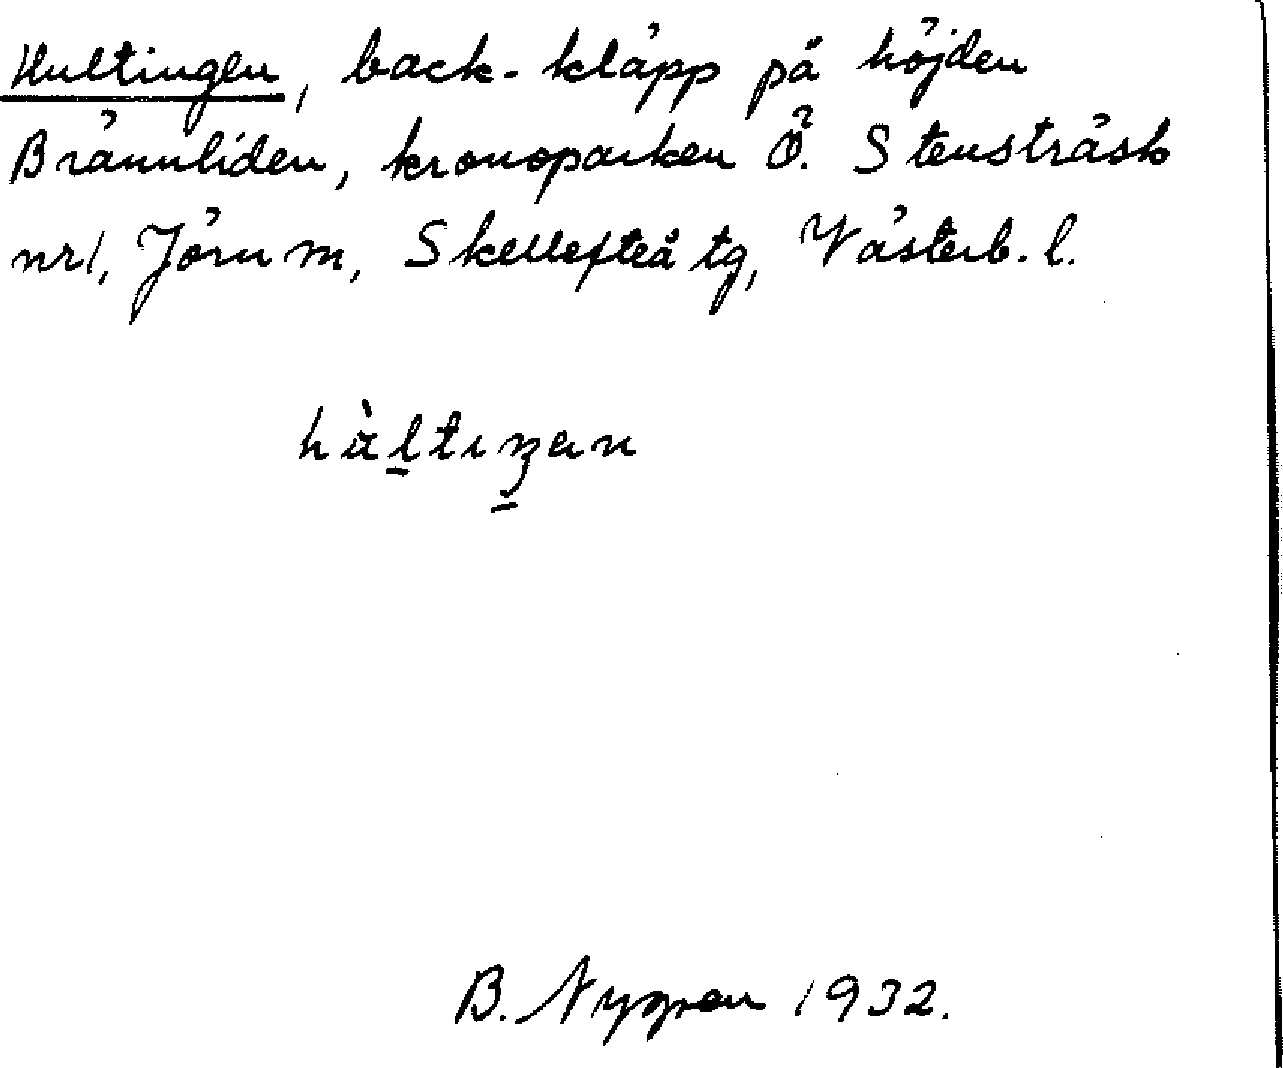 Hultingen, back-kläpp på höjden
Brännliden, kronoparken Ö. Stensträsk
nr 1, Jörn m, Skellefteå tg, Västerb. l.
hàltıŋen
B. Nygren 1932.